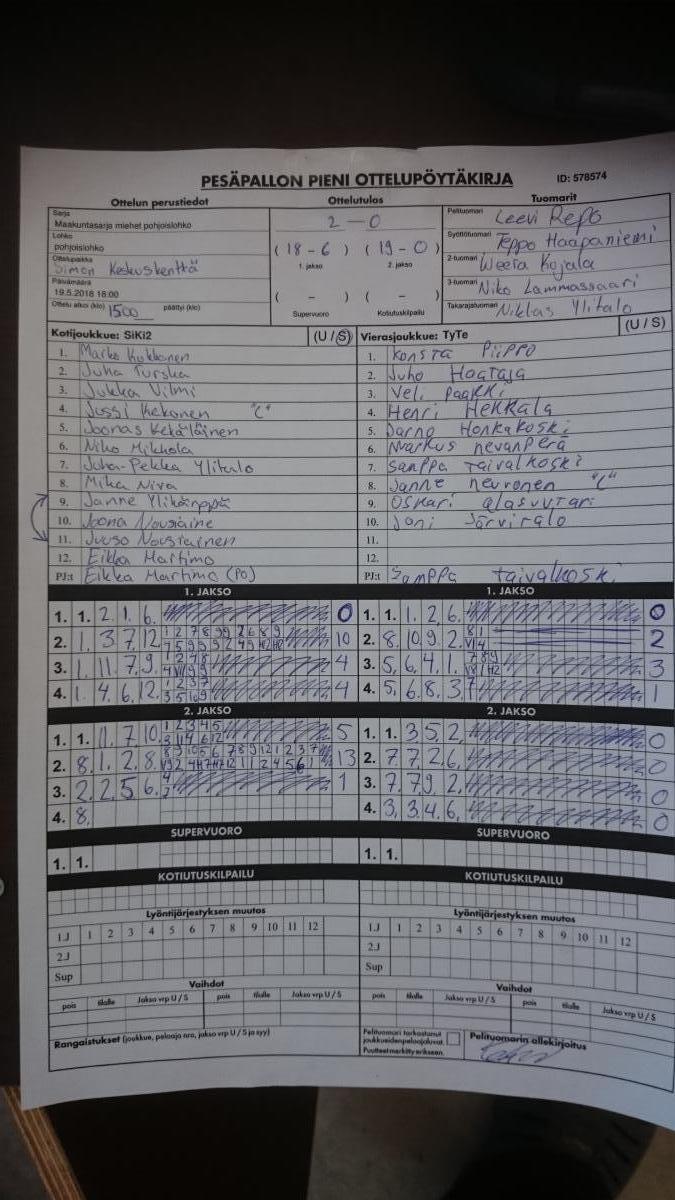 PESÄPALLON PIENI OTTELUPÖYTÄKIRJA ID: 578574
Ottelun perustiedot Ottelutulos Tuomarit
Sarja
Maakuntasarja miehet pohjoislohko
Lohko
pohjoislohko
Ottelupaikka
Simon Keskuskenttä
Päivämäärä
19.5.2018 18:00
Ottelu alkoi (klo) 1500 päättyi (klo)
2 - 0
( 18 - 6 ) ( 19 - 0 )
1. jakso 2. jakso
( - ) ( - )
Supervuoro Kotiutuskilpailu
Pelituomari Leevi Repo
Syöttötuomari Teppo Haapaniemi
2-tuomari Weera Kojala
3-tuomari Niko Lammassaari
Takarajatuomari Niklas Ylitalo
Kotijoukkue: SiKi2 (U / S)
1. Marko Kukkonen
2. Juha Turska
3. Jukka Vilmi
4. Jussi Kekonen "C"
5. Joonas Kekäläinen
6. Niko Mikkola
7. Juha-Pekka Ylitalo
8. Mika Niva
9. Janne Ylikärppä
10. Joona Nousiaine
11. Juuso Nousiainen
12. Eikka Martimo
PJ:t Eikka Martimo (PO)
Vierasjoukkue: TyTe (U / S)
1. Konsta Piippo
2. Juho Haataja
3. Veli Paakki
4. Henri Hekkala
5. Jarno Honkakoski
6. Markus Nevanperä
7. Samppa Taivalkoski
8. Janne Nevronen "C"
9. Oskari Alasuutari
10. Joni Järvirato
11.
12.
PJ:t Samppa Taivalkoski
1. JAKSO
1. 1. 2. 1. 6. 0
2. 1. 3 7. 12. 10
3. 1. 11. 7. 9. 4
4. 1. 4. 6. 12. 4
1. JAKSO
1. 1. 1. 2 6. 0
2. 8. 10. 9. 2. 2
3. 5, 6. 4. 1. 3
4. 5, 6. 8. 3, 1
2. JAKSO
1. 1. 1. 7 10. 5
2. 8. 1. 2. 8. 13
3. 2. 2. 5 6. 1
4. 8.
2. JAKSO
1. 1. 3 5 2. 0
2. 7 7 2. 6. 0
3. 7. 7. 9. 2. 0
4. 3, 3. 4. 6. 0
SUPERVUORO SUPERVUORO
1. 1. 1. 1.
KOTIUTUSKILPAILU KOTIUTUSKILPAILU
Lyöntijärjestyksen muutos Lyöntijärjestyksen muutos
1.J 1 2 3 4 5 6 7 8 9 10 11 12 1.J 1 2 3 4 5 6 7 8 9 10 11 12
2.J 2.J
Sup Sup
Vaihdot Vaihdot
pois tilalle Jakso vrp U / S pois tilalle Jakso vrp U / S pois tilalle Jakso vrp U / S pois tilalle Jakso vrp U / S
Rangaistukset (joukkue, pelaaja nro, jakso vrp U / S ja syy)
Pelituomari tarkastanut
joukkueiden pelaajaluvat.
Puutteet merkitty erikseen.
Pelituomarin allekirjoitus